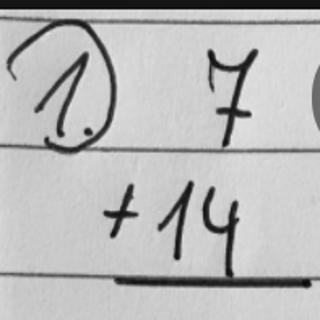 1. 7
+14